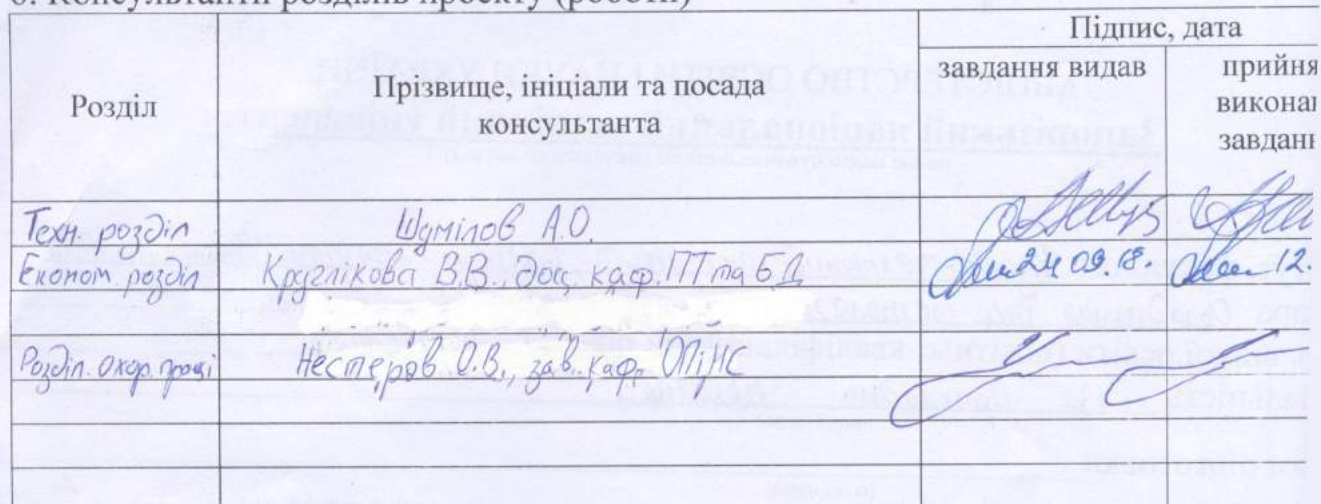 6. Консультанти розділів проекту (роботи)
Розділ
Прізвище, ініціали та посада
консультанта
Підпис, дата
завдання видав
прийня
виконан
завданн
Техн. розділ Шумілов А.О.
Економ. розділ Круглікова В.В., доц. каф. ПТ та БД 24 09.18. 12.
Розділ. охор. праці Нестеров О.В., зав. каф. ОПіНС